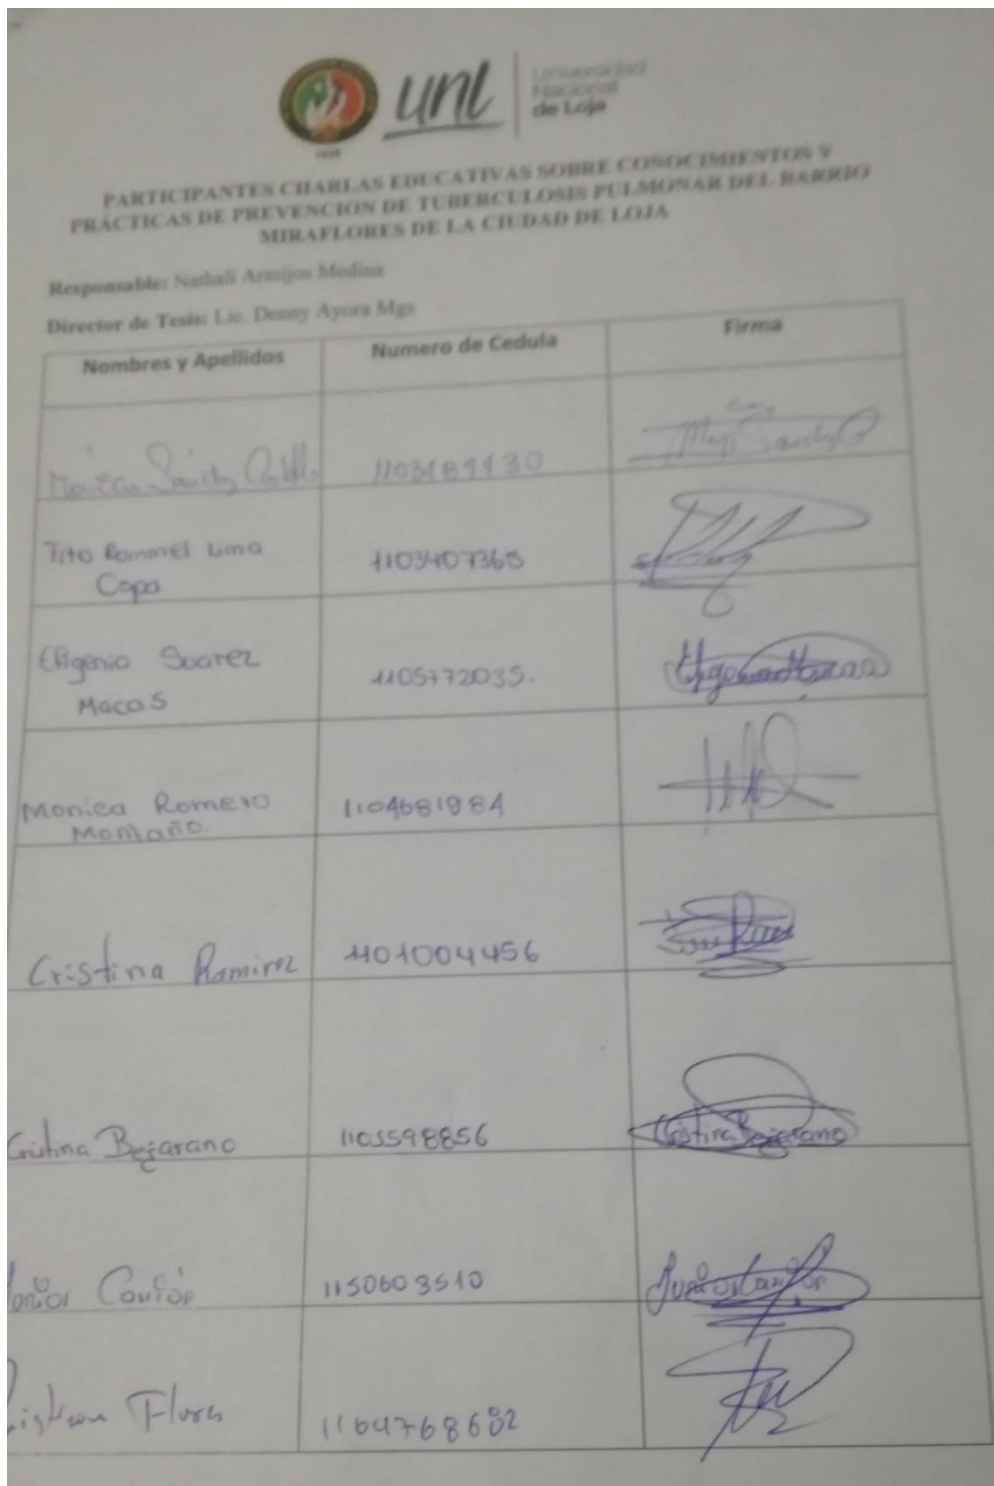 unl
Universidad
Nacional
de Loja
1859
PARTICIPANTES CHARLAS EDUCATIVAS SOBRE CONOCIMIENTOS Y
PRÁCTICAS DE PREVENCION DE TUBERCULOSIS PULMONAR DEL BARRIO
MIRAFLORES DE LA CIUDAD DE LOJA
Responsable: Nathali Armijos Medina
Director de Tesis: Lic. Denny Ayora Mgs
Nombres y Apellidos Numero de Cedula Firma
Tito Rommel Lima
Copa 1103407365
Efigenio Suarez
Macas 1105772035.
Monica Romero
Montaño. 1104681984
Cristina Ramirez 1101004456
Cristina Bejarano 1103598856 Cristina Bejarano
1150603510
Flores 1104768682